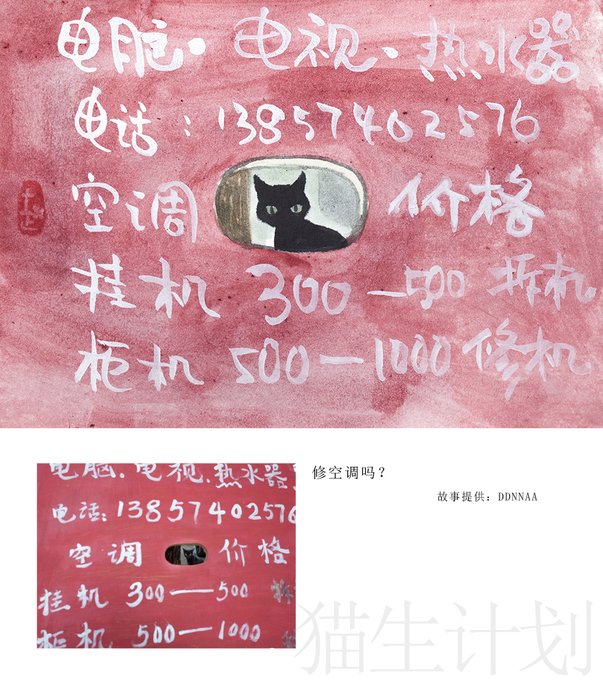 电脑·电视·热水器
电话：13857402576
空调 价格
挂机 300—500 拆机
柜机 500—1000 修机
修空调吗？
故事提供：DDNNAA
电脑.电视.热水器
电话：13857402576
空调 价格
挂机 300—500
柜机 500—1000
猫生计划